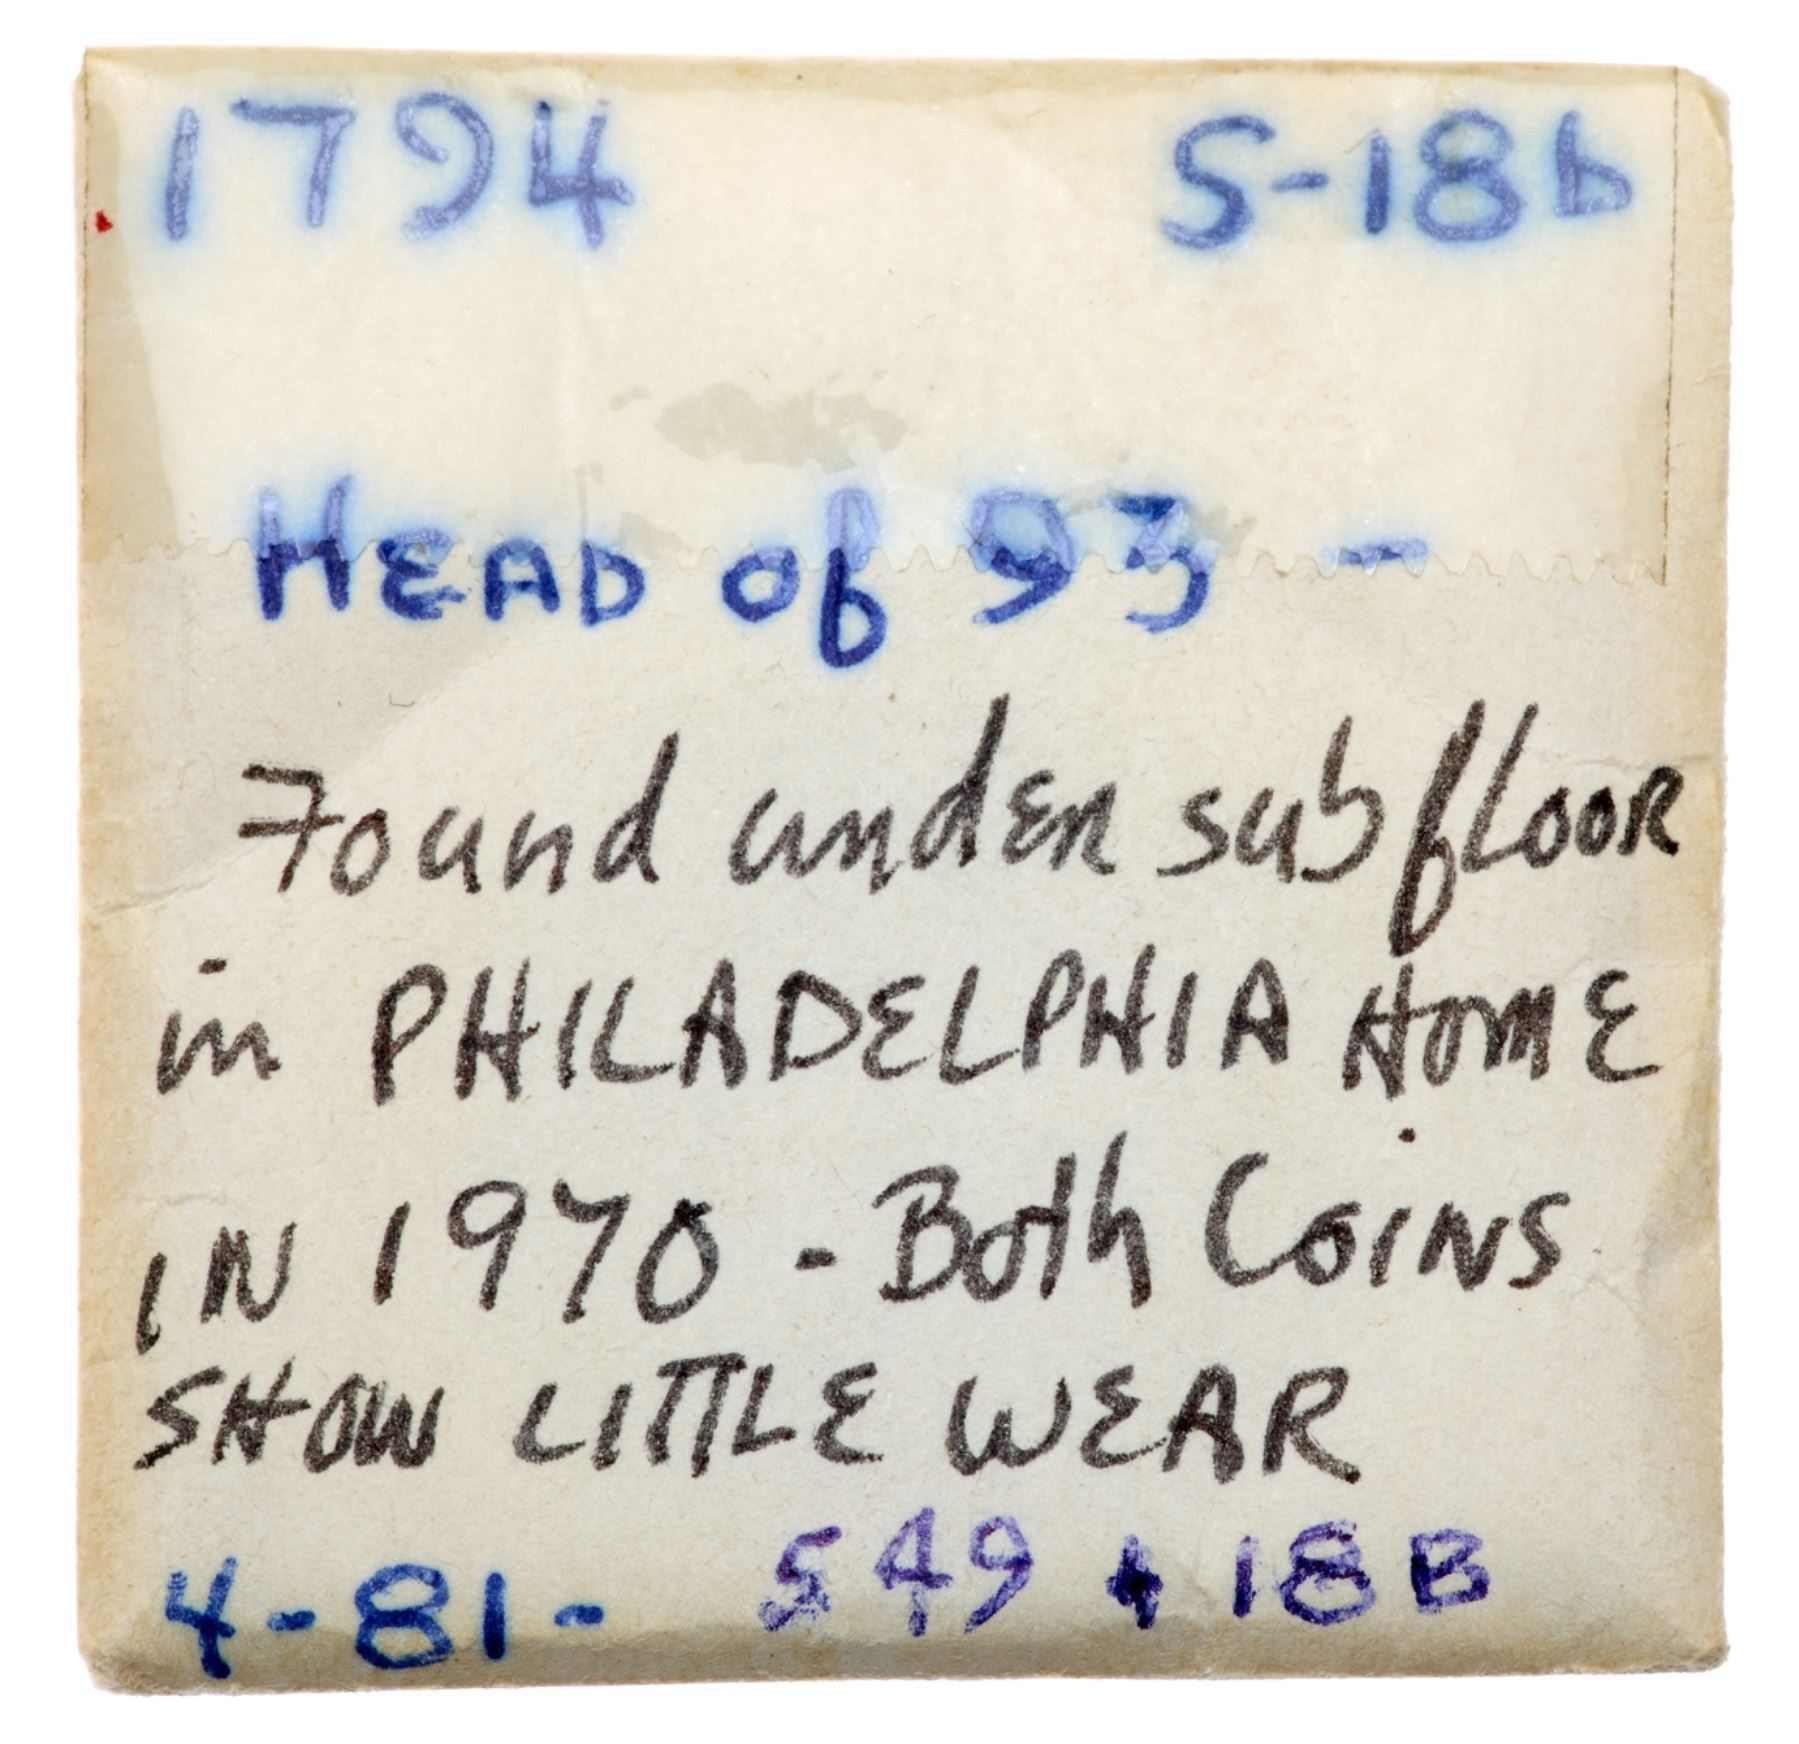 1794 S-18b
HEAD of 93 -
Found under subfloor
in PHILADELPHIA HOME
IN 1970 - Both Coins
SHOW LITTLE WEAR
4-81- S 49 + 18B